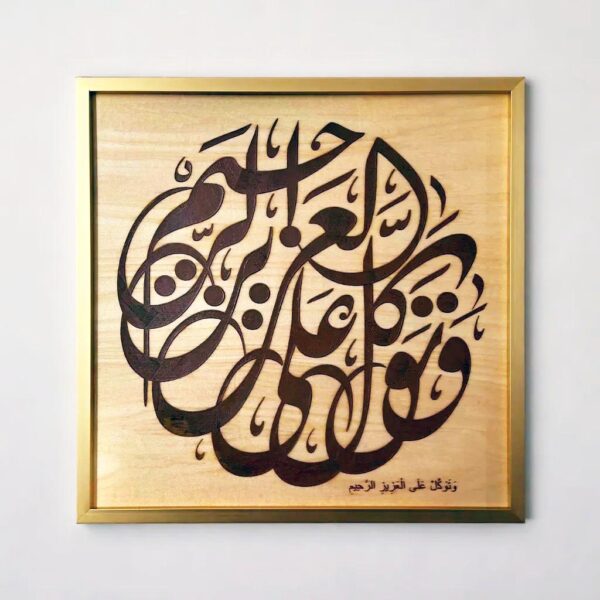 وتوكل على العزيز الرحيم
وَتَوَكَّلْ عَلَى الْعَزِيزِ الرَّحِيمِ